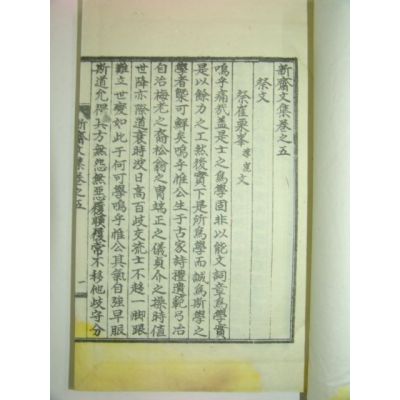 新齋文集卷之五
祭文
祭崔栗峯 文
嗚乎痛哉蓋士之爲學固非以能文詞章爲學實
是以餘力之工然後實下是所爲學而誠爲斯學之
學者槩可鮮矣嗚乎惟公生于古家詩禮遺範弓冶
自治梅老之裔松翁之胄端正之儀貞介之操時值
世降亦際道衰時沒日高百歧交流士不趍一脚跟
難立世變如此于何可學嗚乎惟公其氣自強早脤
斯道允 其方無怨無惡 常不移他歧守分
新齋文集卷之五 一